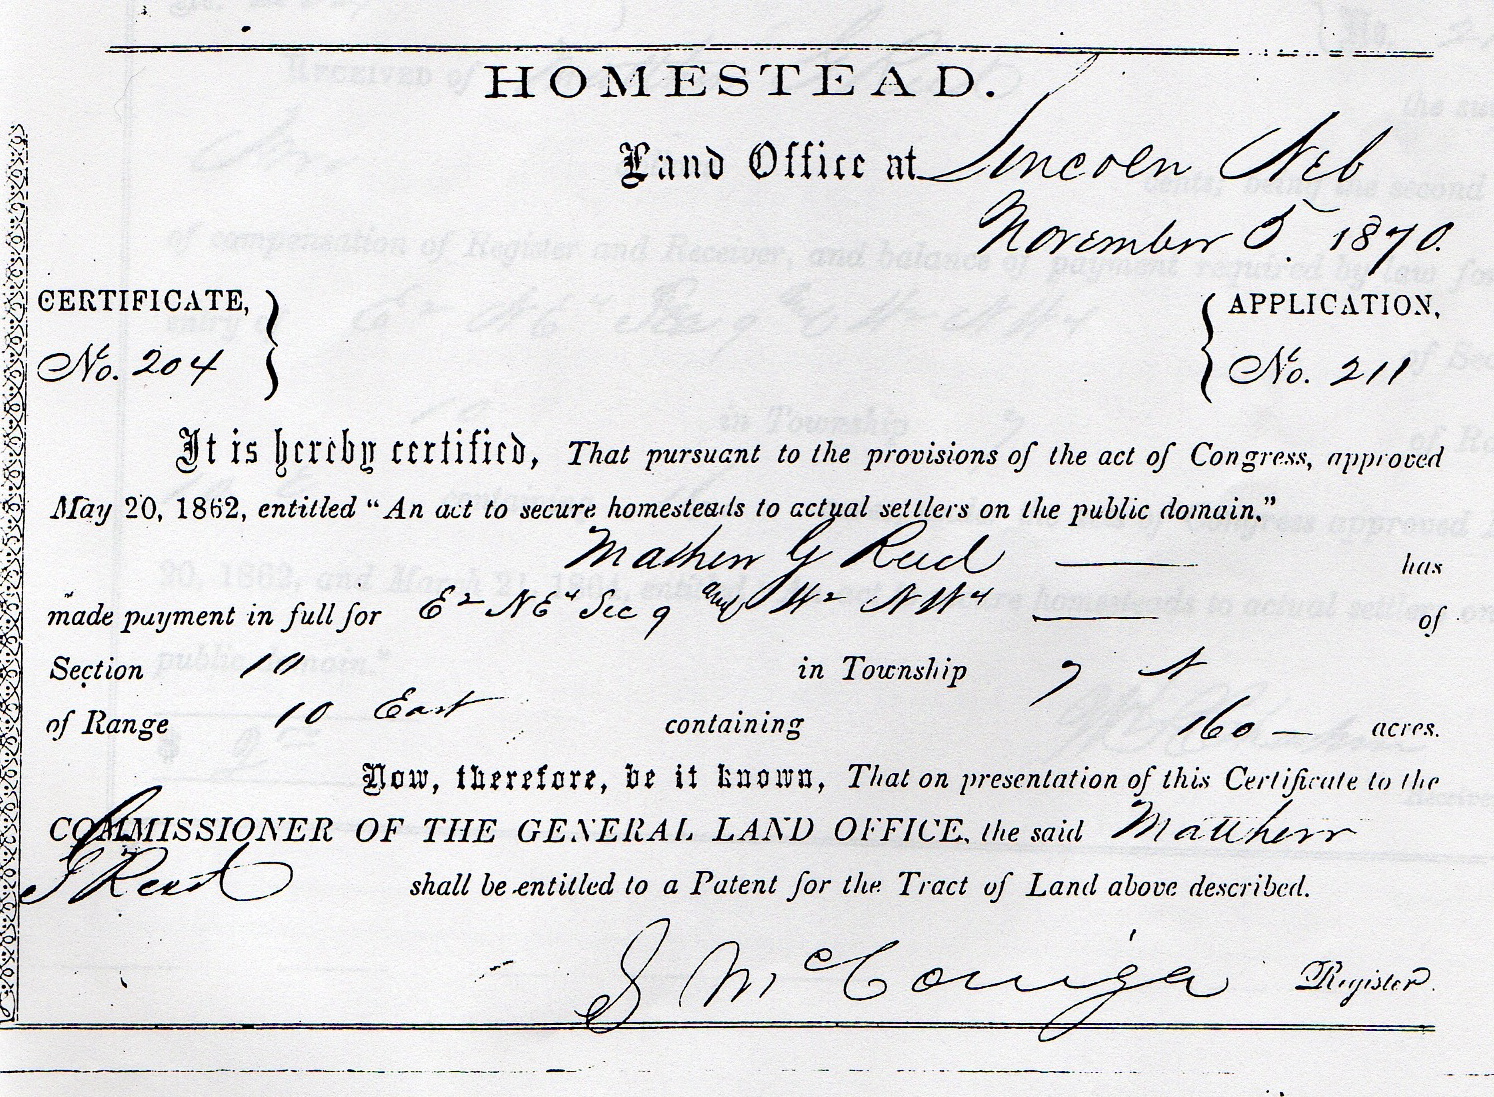 HOMESTEAD.
Land Office at Lincoln Neb
November 5, 1870.
CERTIFICATE, APPLICATION,
No. 204 No. 211
It is hereby certified, That pursuant to the provisions of the act of Congress, approved
May 20, 1862, entitled “An act to secure homesteads to actual settlers on the public domain,”
Mathew G Reed — has
made payment in full for E2 NE4 Sec 9 and W2 NW4 — of
Section 10 in Township 7 N
of Range 10 East containing 160 — acres.
Now, therefore, be it known, That on presentation of this Certificate to the
COMMISSIONER OF THE GENERAL LAND OFFICE, the said Matthew
G Reed shall be entitled to a Patent for the Tract of Land above described.
S McConiga Register.